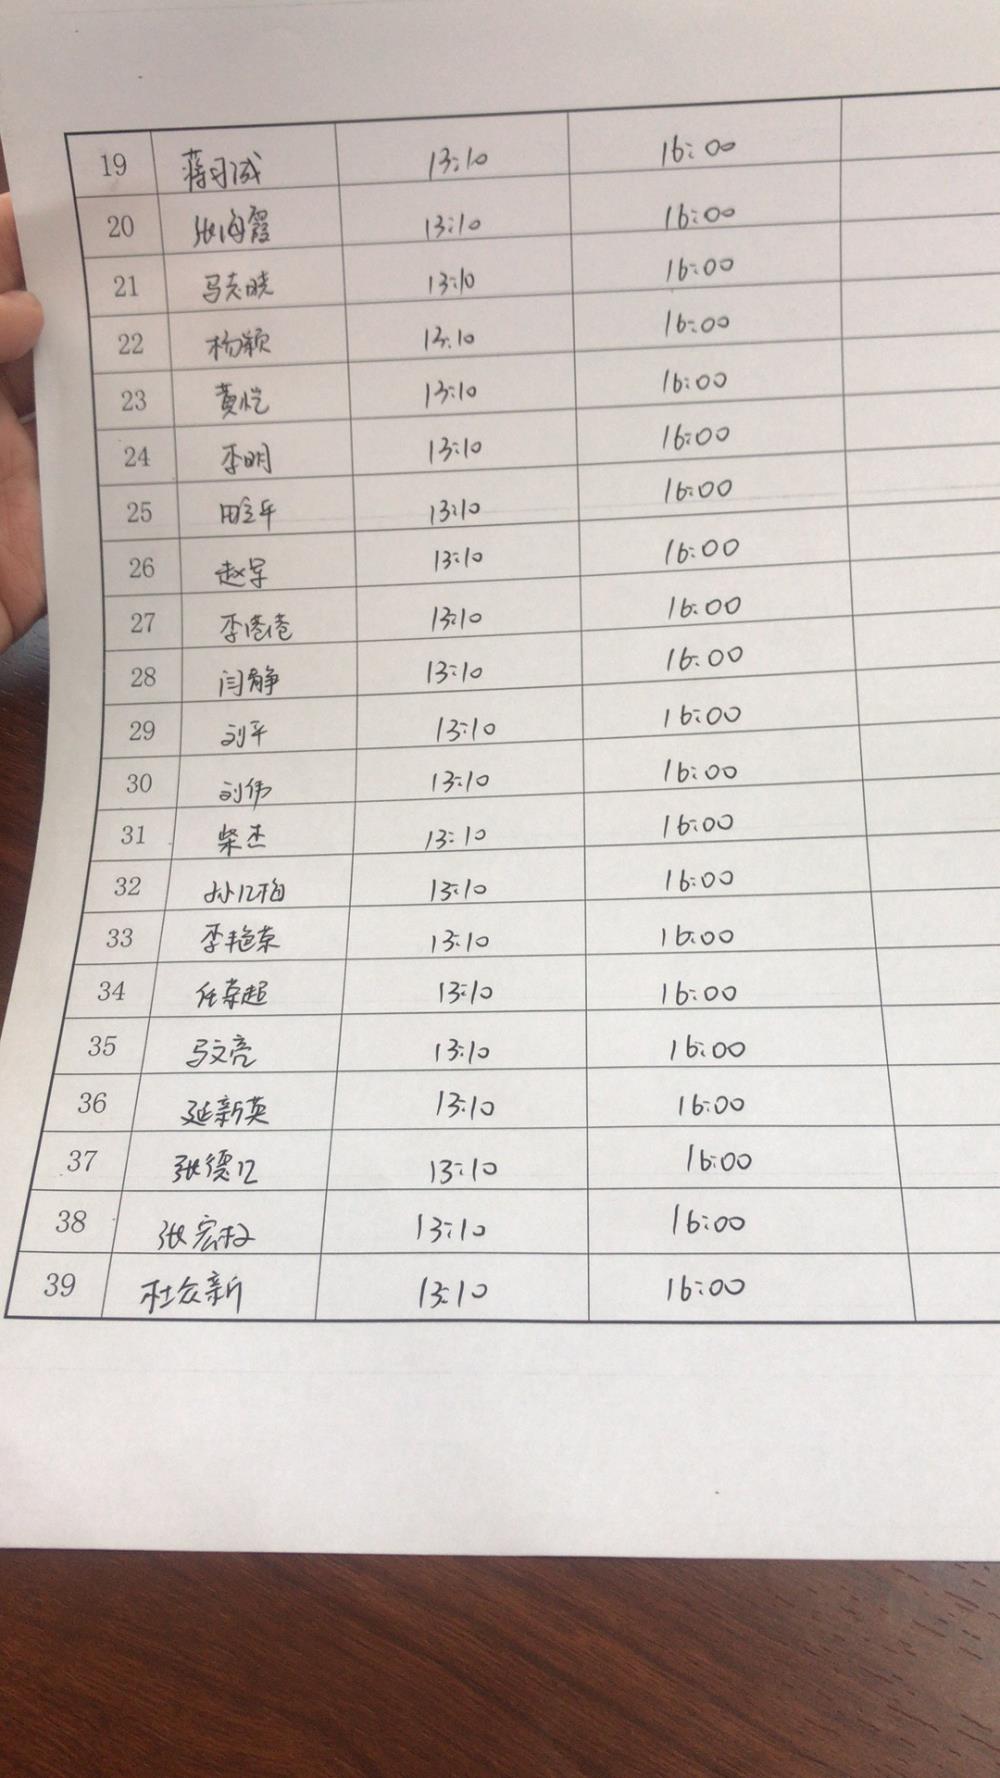 19 13:10 16:00
20 张海霞 13:10 16:00
21 马志晓 13:10 16:00
22 杨颖 13:10 16:00
23 黄恺 13:10 16:00
24 李明 13:10 16:00
25 13:10 16:00
26 赵军 13:10 16:00
27 李港港 13:10 16:00
28 闫静 13:10 16:00
29 刘平 13:10 16:00
30 刘伟 13:10 16:00
31 柴杰 13:10 16:00
32 13:10 16:00
33 李艳荣 13:10 16:00
34 任荣超 13:10 16:00
35 马文亮 13:10 16:00
36 延新英 13:10 16:00
37 张德江 13:10 16:00
38 张宏权 13:10 16:00
39 杜众新 13:10 16:00